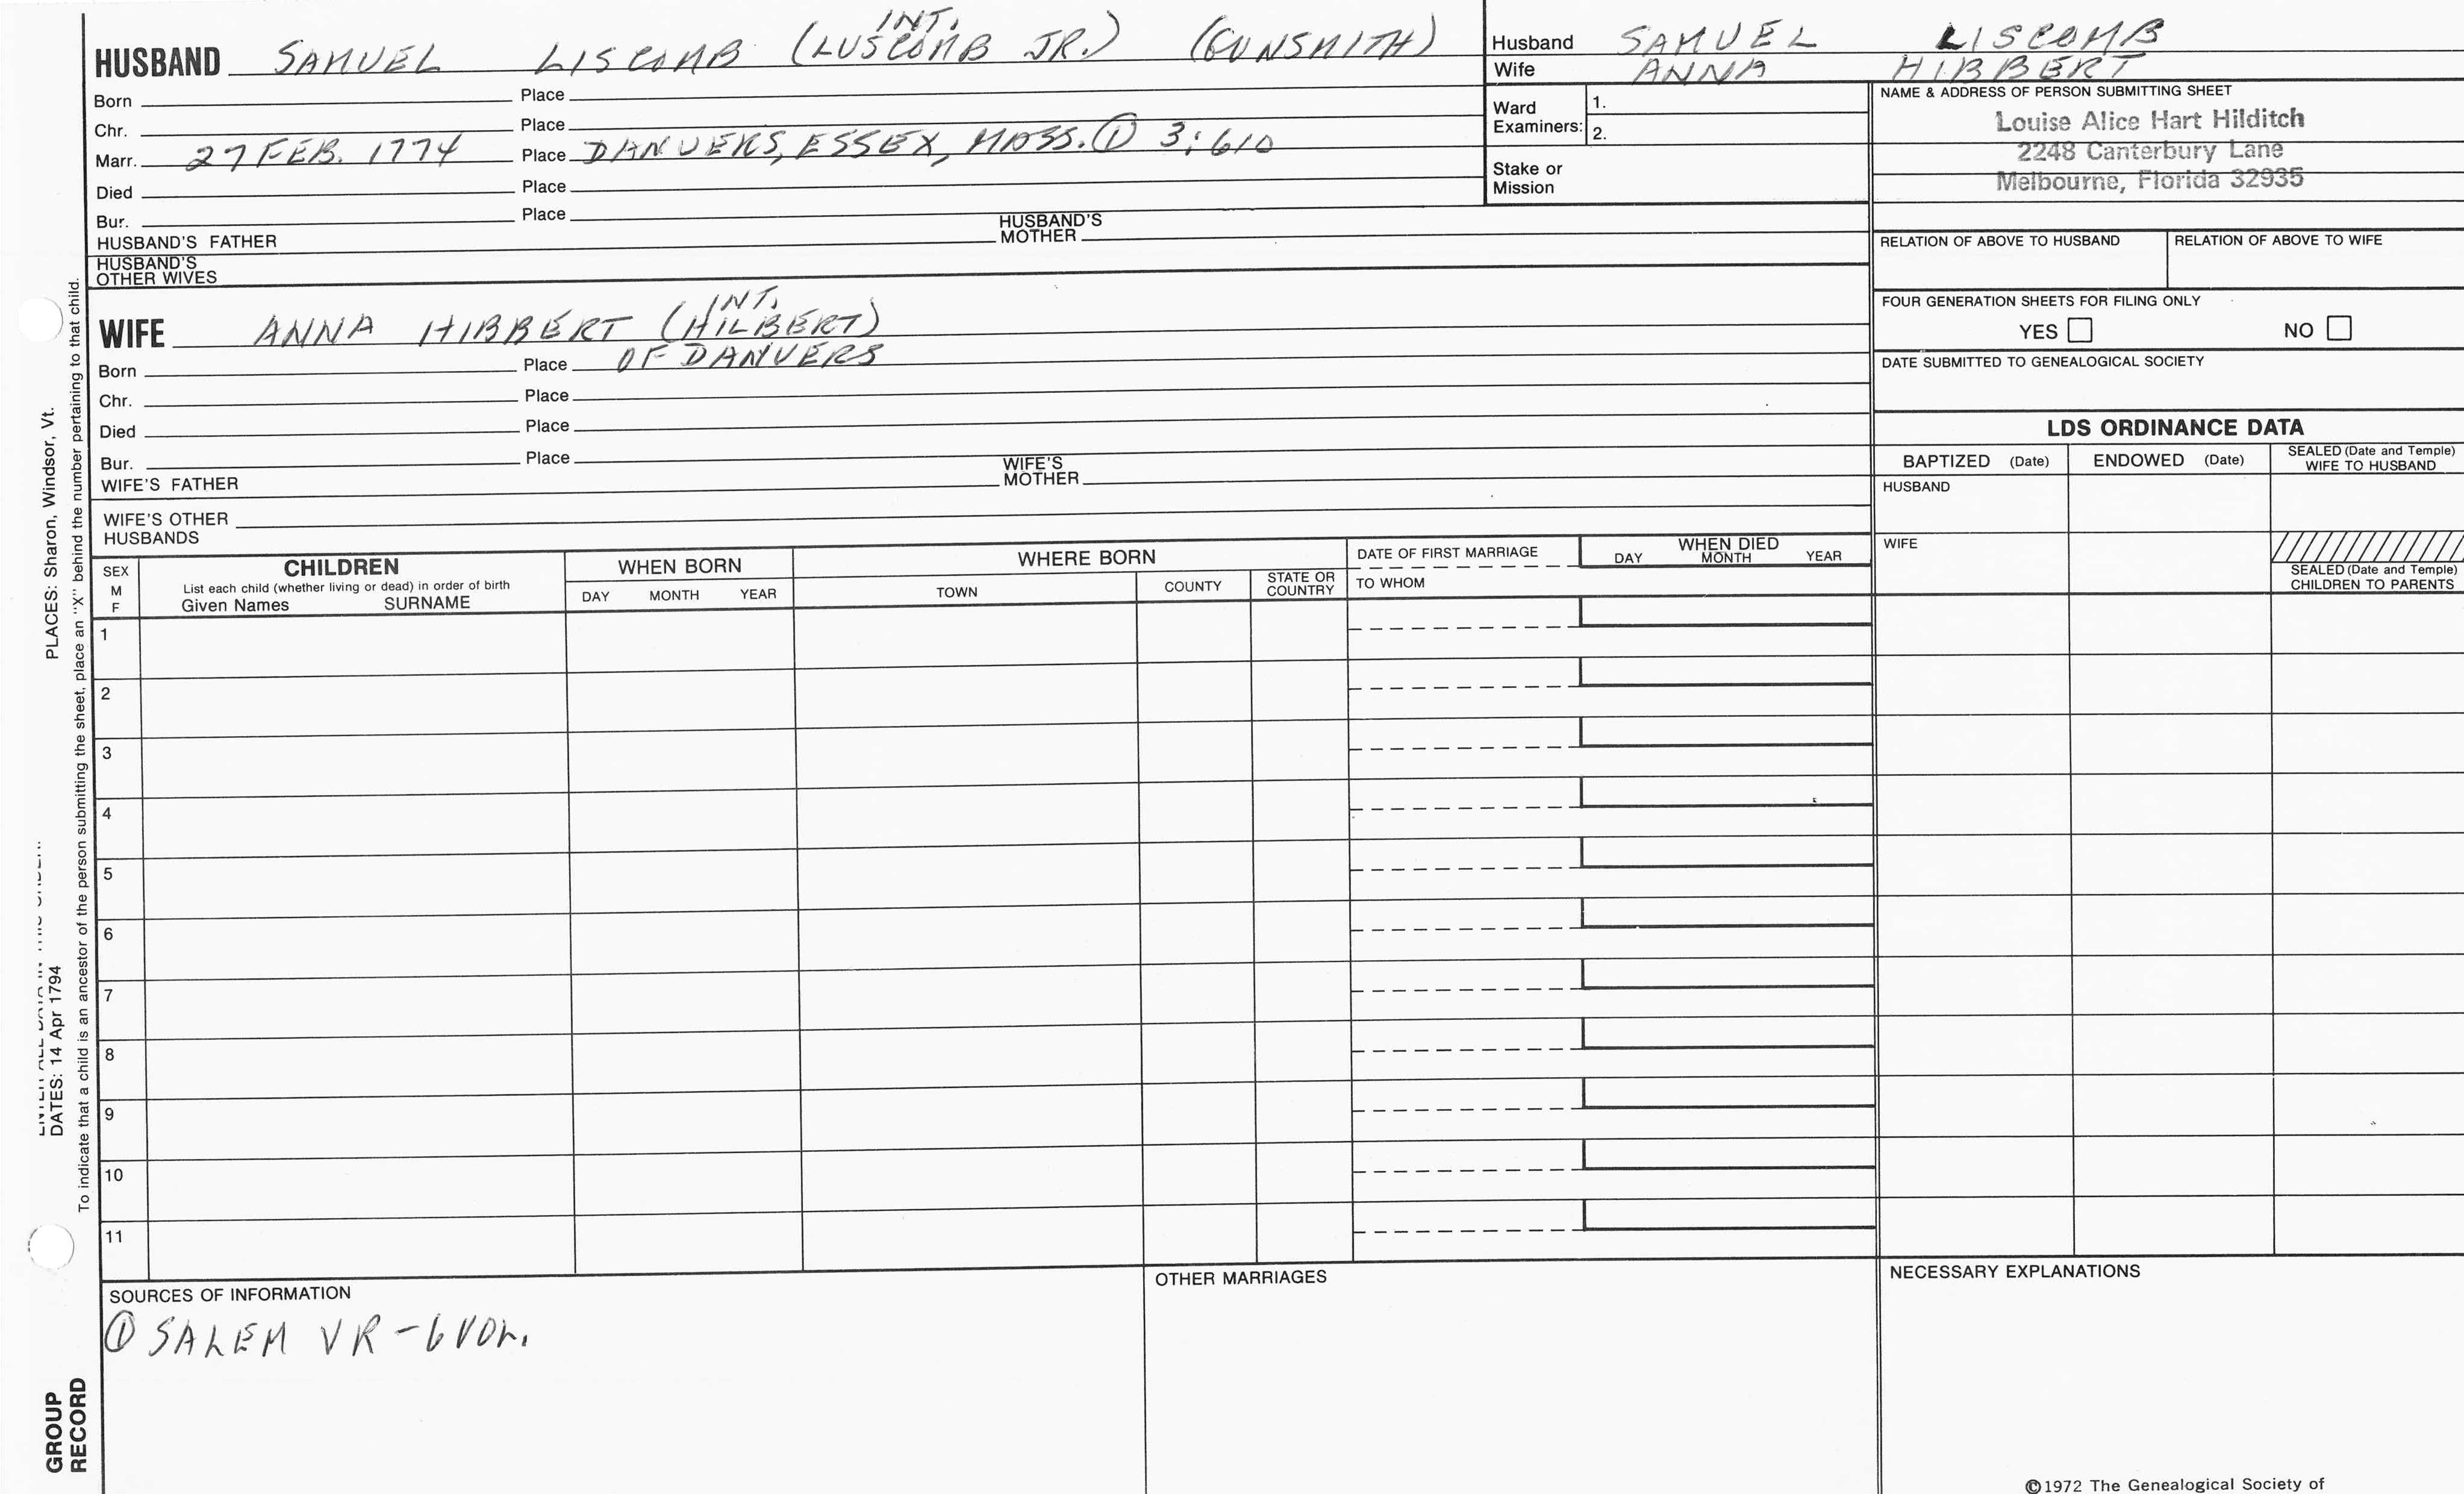 INT.
HUSBAND SAMUEL LISCOMB (LUSCOMB JR.) (GUNSMITH)
Born Place
Chr. Place
Marr. 27 FEB. 1774 Place DANVERS, ESSEX, MASS. ① 3:610
Died Place
Bur. Place
HUSBAND'S FATHER HUSBAND'S MOTHER
HUSBAND'S
OTHER WIVES
INT.
WIFE ANNA HIBBERT (HILBERT)
Born Place OF DANVERS
Chr. Place
Died Place
Bur. Place
WIFE'S FATHER WIFE'S MOTHER
WIFE'S OTHER
HUSBANDS
Husband SAMUEL LISCOMB
Wife ANNA HIBBERT
Ward
Examiners:
1.
2.
Stake or
Mission
NAME & ADDRESS OF PERSON SUBMITTING SHEET
Louise Alice Hart Hilditch
2248 Canterbury Lane
Melbourne, Florida 32935
RELATION OF ABOVE TO HUSBAND RELATION OF ABOVE TO WIFE
FOUR GENERATION SHEETS FOR FILING ONLY
YES NO
DATE SUBMITTED TO GENEALOGICAL SOCIETY
LDS ORDINANCE DATA
BAPTIZED (Date) ENDOWED (Date) SEALED (Date and Temple)
WIFE TO HUSBAND
HUSBAND
WIFE
SEALED (Date and Temple)
CHILDREN TO PARENTS
SEX
M
F
CHILDREN
List each child (whether living or dead) in order of birth
Given Names SURNAME
WHEN BORN
DAY MONTH YEAR
WHERE BORN
TOWN COUNTY STATE OR
COUNTRY
DATE OF FIRST MARRIAGE
TO WHOM
WHEN DIED
DAY MONTH YEAR
1
2
3
4
5
6
7
8
9
10
11
SOURCES OF INFORMATION
① SALEM VR - 6 VOL.
OTHER MARRIAGES
NECESSARY EXPLANATIONS
©1972 The Genealogical Society of
PLACES: Sharon, Windsor, Vt.
DATES: 14 Apr 1794
To indicate that a child is an ancestor of the person submitting the sheet, place an "X" behind the number pertaining to that child.
GROUP
RECORD